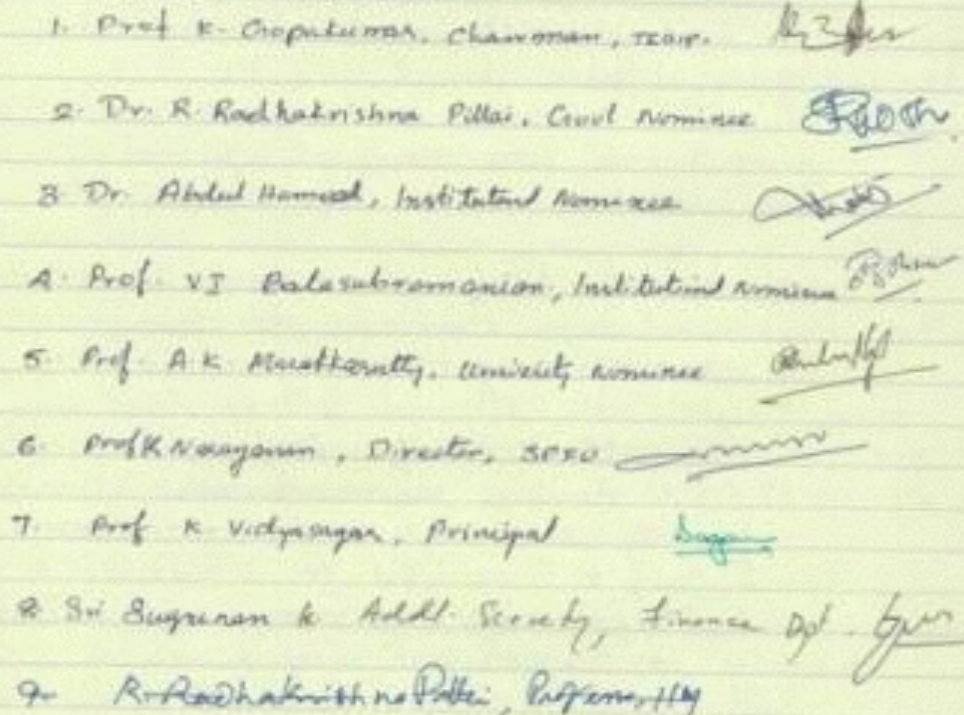 1. Prof K. Gopakumar, Chairman, TEQIP.
2. Dr. R. Radhakrishna Pillai, Govt Nominee
3 Dr. Abdul Hameed, Institutional Nominee
4. Prof. VI Balasubramanian, Institutional Nominee
5. Prof. A.K. Nominee
6. Prof K Narayanan, Director, SPFU
7. Prof K Vidyasagar, Principal Sagar
8. Sri Sugunan k Addl. Secretary, Finance Dpt.
9. R. Radhakrishna Pillai, Professor,